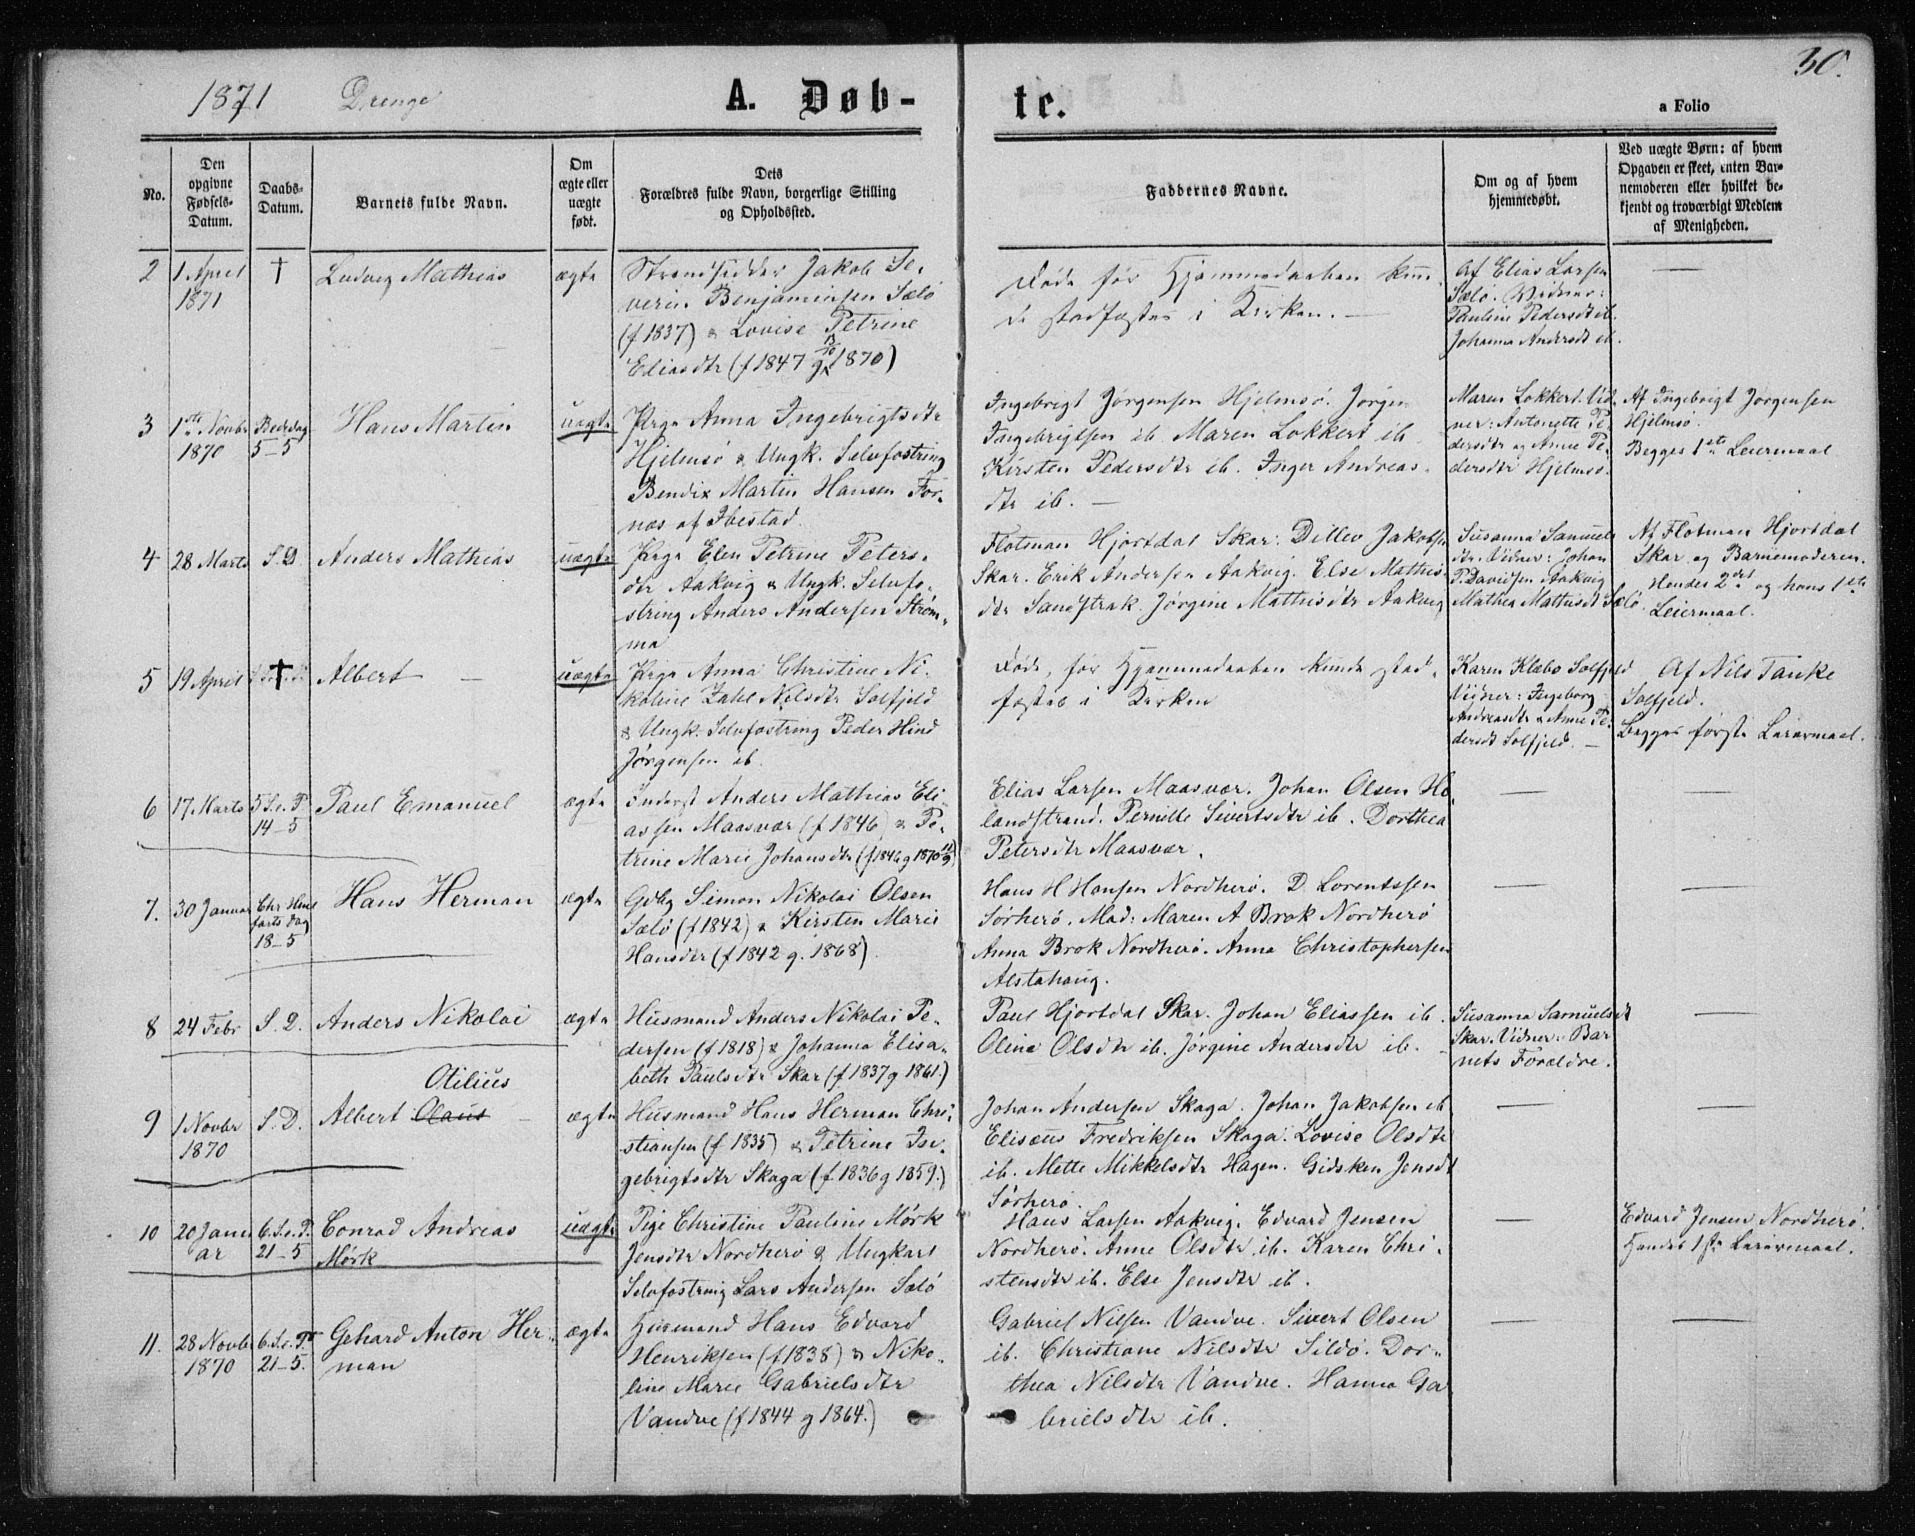 1871 Drenge A. Døb-
te. a Folio 30.
No.
Den opgivne Fødsels-Datum.
Daabs-Datum.
Barnets fulde Navn.
Om ægte eller uægte født.
Dets
Forældres fulde Navn, borgerlige Stilling
og Opholdssted.
Faddernes Navne.
Om og af hvem
hjemmedøbt.
Ved uægte Børn: af hvem
Opgaven er skeet, enten Bar-
nemoderen eller hvilket be-
kjendt og troværdigt Medlem
af Menigheden.
2
1 April
1871
†
Ludvig Mathias
ægte
Strandsidder Jakob Se-
verin Benjaminsen Sælø
(f 1837) & Lovise Petrine
Eliasdtr (f 1847 g 13/10 1870)
Døde før Hjemmedaaben kun-
de stadfæstes i Kirken. —
Af Elias Larsen
Sælø. Vidner:
Pauline Pedersdt ib.
Johanna Andersdt ib.
—
3
1ste Novbr
1870
Bededag
5-5
Hans Martin
uægte
Pige Anna Ingebrigtsdtr
Hjelmsø & Ungk. Selvfostring
Bendix Martin Hansen For-
næs af Ibestad.
Ingebrigt Jørgensen Hjelmsø. Jørgen
Ingebrigtsen ib. Maren Lokkert ib.
Kirsten Pedersdtr ib. Inger Andreas-
dtr ib. —
Maren Lokkert. Vid-
ner: Antonette Pe-
dersdtr og Anne Pe-
dersdtr Hjelmsø.
Af Ingebrigt Jørgensen
Hjelmsø.
Begges 1ste Leiermaal
4
28 Marts
S. D.
Anders Mathias
uægte
Pige Elen Petrine Peters-
dtr Aakvig & Ungk. Selvfo-
string Anders Andersen Strøm-
ma
Flotman Hjortdal Skar. Ditlev Jakobsen
Skar. Erik Andersen Aakvig. Else Mathis-
dtr Sandstrak. Jørgine Mathisdtr Aakvig
Susanna Samuels
dtr. Vidner: Johan
P. Davidsen Aakvig
Mathea Mathisdt Sælø.
Af Flotman Hjortdal
Skar og Barnemoderen.
Hendes 2det og hans 1ste
Leiermaal.
5
19 April
†
Albert —
uægte
Pige Anna Christine Ni-
koline Zahl Nilsdtr Solfjeld
& Ungk. Selvfostring Peder Hind
Jørgensen ib.
Døde, før Hjemmedaaben kunde stad-
fæstes i Kirken
Karen Klæbo Solfjeld
Vidner: Ingeborg
Andreasdtr & Anne Pe-
dersdt Solfjeld. —
Af Nils Tanke
Solfjeld.
Begges første Leiermaal.
6
17. Marts
5 S. e. P.
14-5
Paul Emanuel
ægte
Inderst Anders Mathias Eli-
assen Maasvær (f 1846) & Pe-
trine Marie Johansdtr (f 1846 g 1870 11/9)
Elias Larsen Maasvær. Johan Olsen He-
landstrand. Pernille Sivertsdtr ib. Dorthea
Petersdtr Maasvær.
—
—
7.
30 Januar
Chr Him
farts dag
18-5
Hans Herman
ægte
Gdbr Simon Nikolai Olsen
Sælø (f 1842) & Kirsten Marie
Hansdtr (f 1842 g. 1868)
Hans H Hansen Nordherø. D. Lorentssen
Sørherø. Mad: Maren A Brok Nordherø
Anna Brok Nordherø. Anna Christophersen
Alstahaug.
—
—
8
24 Febr
S. D.
Anders Nikolai
ægte
Husmand Anders Nikolai Pe-
dersen (f 1818) & Johanna Elisa-
beth Paulsdtr Skar (f 1837 g 1861.)
Paul Hjortdal Skar. Johan Eliassen ib.
Oline Olsdtr ib. Jørgine Andersdtr ib.
Susanna Samuelsdt
Skar. Vidner: Bar
nets Forældre.
—
9
1 Novbr
1870
S. D.
Otilius
Albert Olaus —
ægte
Husmand Hans Herman Chri-
stiansen (f 1835) & Petrine In-
gebrigtsdtr Skaga (f 1836 g 1859.)
Johan Andersen Skaga. Johan Jakobsen ib
Elisæus Fredriksen Skaga. Lovise Olsdtr
ib. Mette Mikkelsdtr Hagen. Gidsken Jensdt
Sørherø.
—
—
10
20 Janu
ar
6. S. e. P.
21-5
Conrad Andreas
Mørk
uægte
Pige Christine Pauline Mørk
Jensdtr Nordherø & Ungkarl
Selvfostring Lars Andersen Sælø
Hans Larsen Aakvig. Edvard Jensen
Nordherø. Anne Olsdtr ib. Karen Chri-
stensdtr ib. Else Jensdtr ib.
—
Edvard Jensen Nordherø.
Hendes 1ste Leiermaal.
11.
28 Novbr
1870
6. S. e. P
21-5.
Gehard Anton Her-
man
ægte
Husmand Hans Edvard
Henriksen (f 1838) & Niko-
line Marie Gabrielsdtr
Vandve (f 1844 g 1864.)
Gabriel Nilsen Vandve. Sivert Olsen
ib. Christiane Nilsdtr Sildø. Dor-
thea Nilsdtr Vandve. Hanna Ga
brielsdtr ib.
—
—